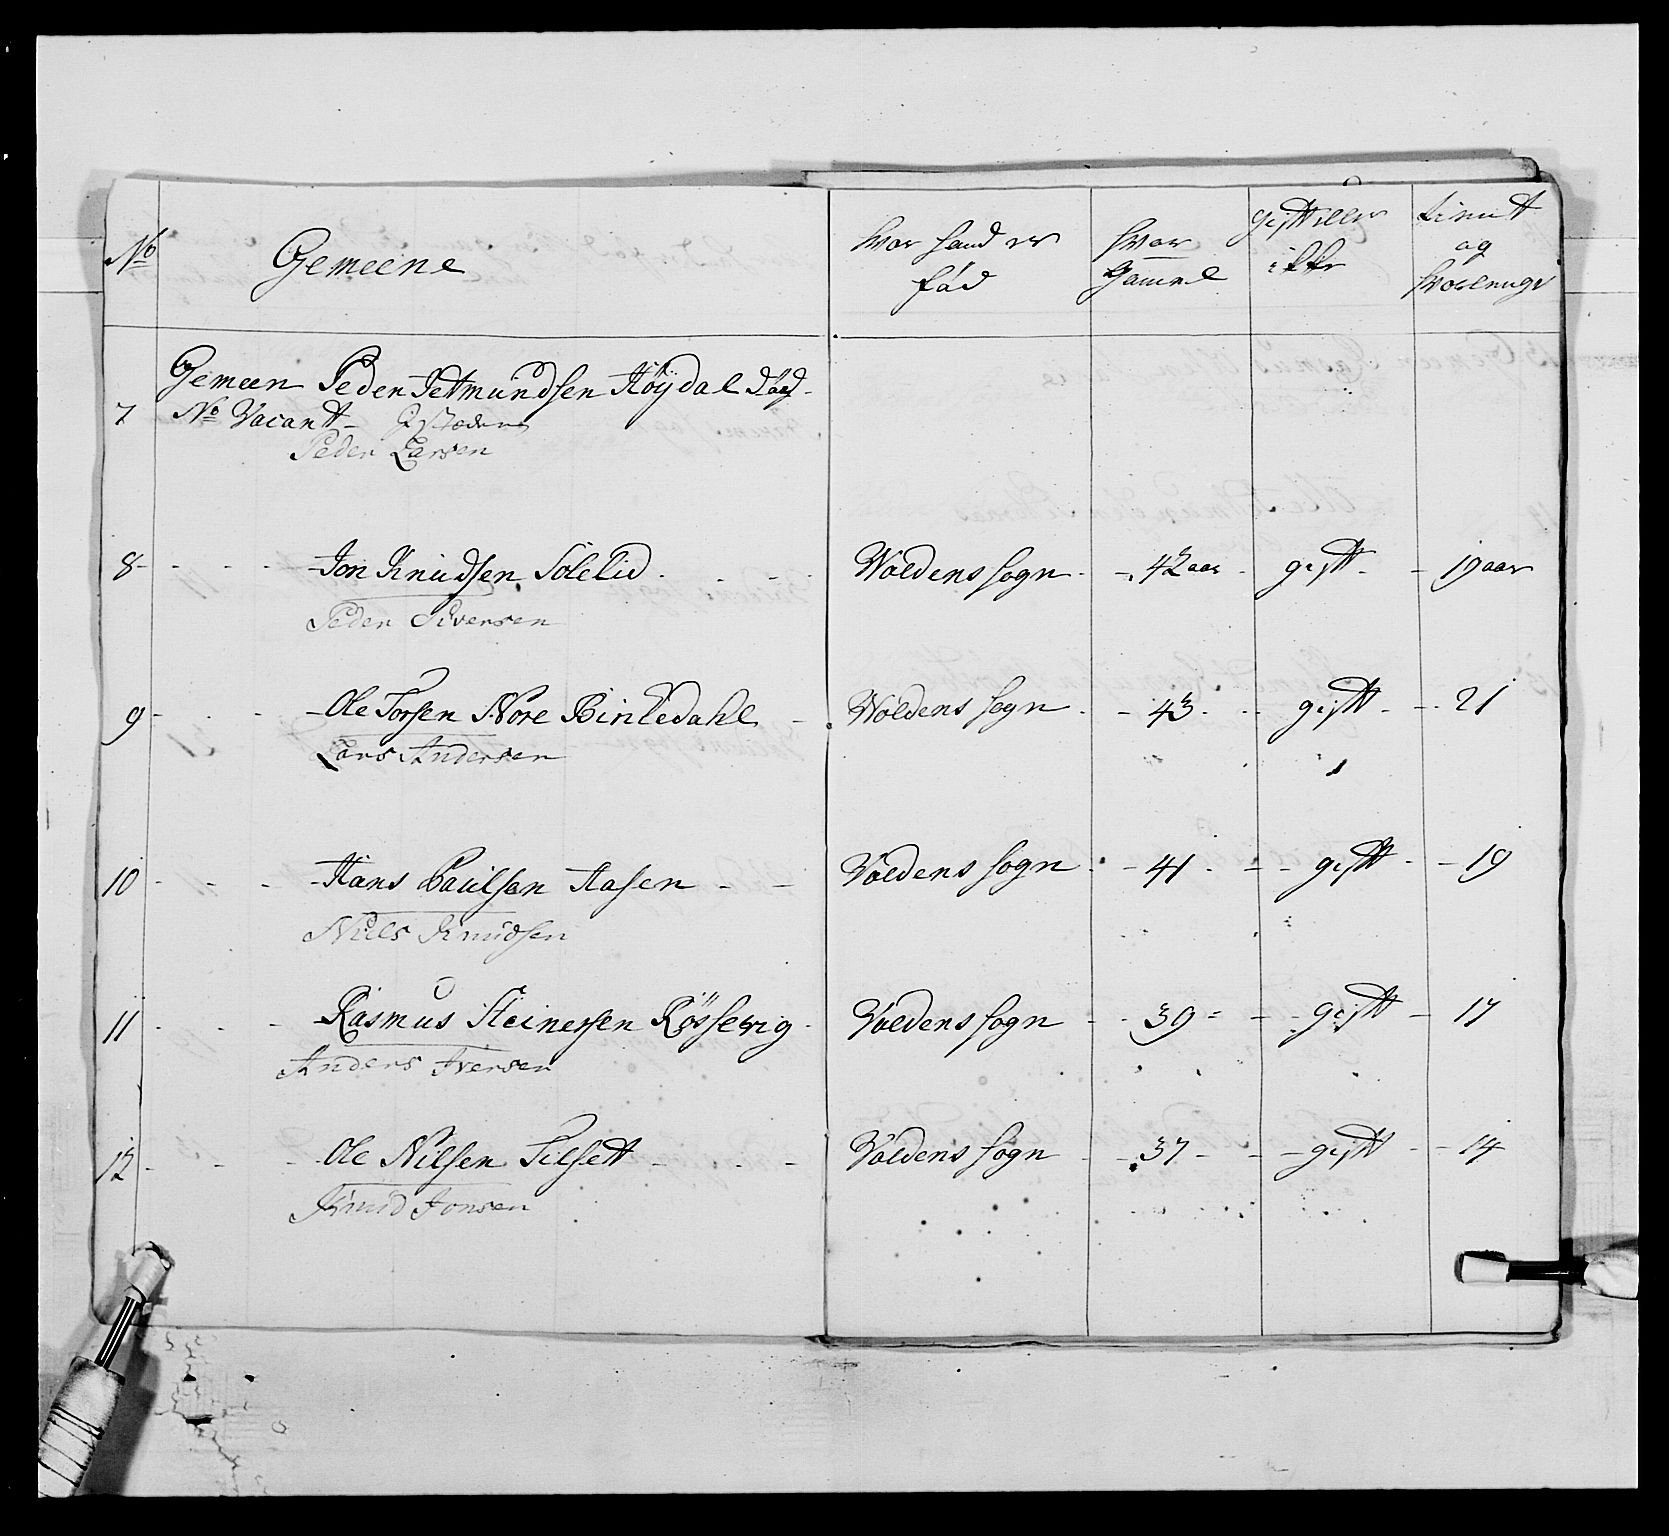 No Gemeene hvor hand er fød hvor Gammel gift eller ikke tient og hvorlenge
Gemeen Peder Petmundsen Höydal död
7 No Vacant
Peder Larsen
8 Jon Knudsen Sölelid Woldens sogn 42 aar gift 19 aar
Peder Siversen
9 Ole Torsen Nore Birkedahl Woldens sogn 43 gift 21
Lars Andersen
10 Hans Paulsen Aasen Voldens sogn 41 gift 19
Niels Knudsen
11 Rasmus Steinersen Rössevig Voldens sogn 39 gift 17
Anders Iversen
12 Ole Nilsen Silsett Voldens sogn 37 gift 14
Knud Jonsen